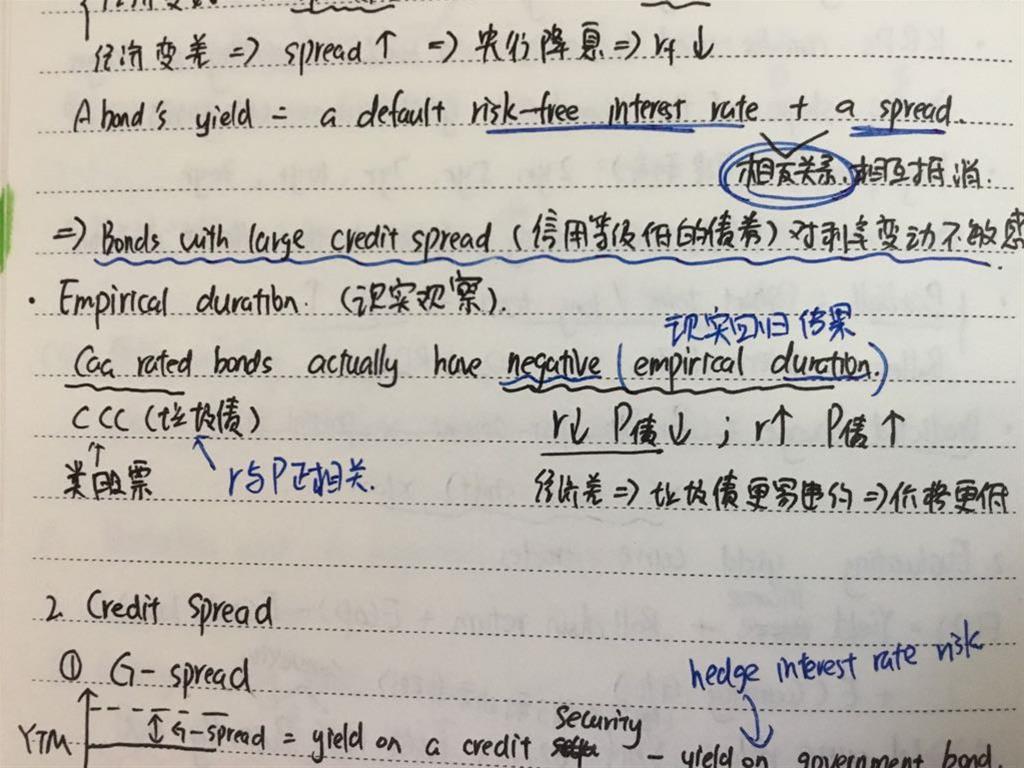 经济变差 => spread ↑ => 央行降息 => rf ↓
A bond's yield = a default risk-free interest rate + a spread.
相反关系.相互抵消.
=> Bonds with large credit spread (信用等级低的债券) 对利率变动不敏感
· Empirical duration. (现实观察).
现实回归结果
Caa rated bonds actually have negative (empirical duration.)
CCC (垃圾债) r↓ P债↓ ; r↑ P债↑
类股票 r与P正相关. 经济差 => 垃圾债更易违约 => 价格更低
2. Credit Spread
① G-spread
hedge interest rate risk
Security
YTM G-spread = yield on a credit - yield on government bond.